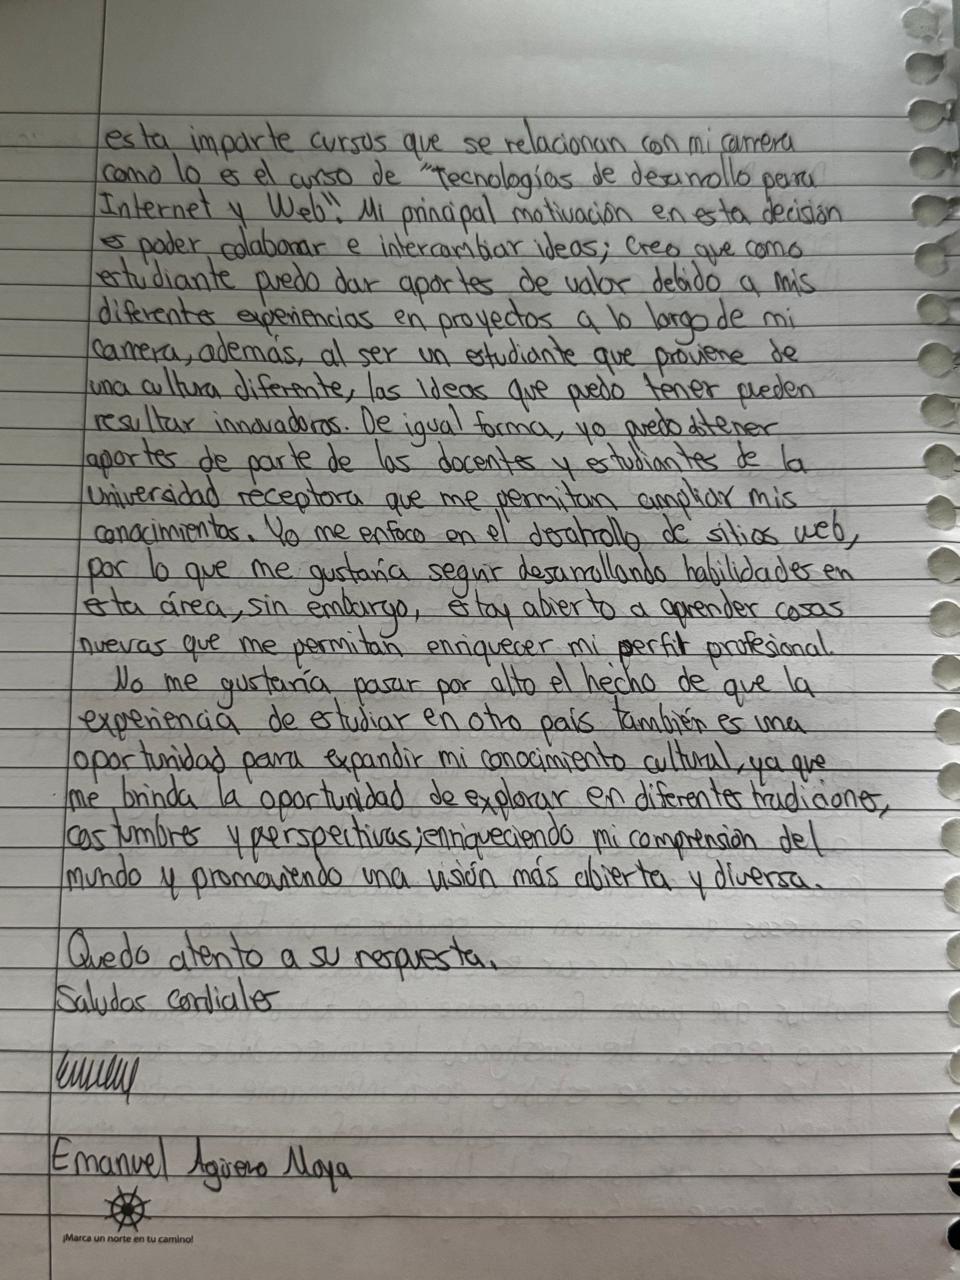 esta imparte cursos que se relacionan con mi carrera
como lo es el curso de "Tecnologías de desarrollo para
Internet y Web". Mi principal motivación en esta decisión
es poder colaborar e intercambiar ideas; creo que como
estudiante puedo dar aportes de valor debido a mis
diferentes experiencias en proyectos a lo largo de mi
carrera, además, al ser un estudiante que proviene de
una cultura diferente, las ideas que puedo tener pueden
resultar innovadoras. De igual forma, yo puedo obtener
aportes de parte de los docentes y estudiantes de la
universidad receptora que me permitan ampliar mis
conocimientos. Yo me enfoco en el desarrollo de sitios web,
por lo que me gustaría seguir desarrollando habilidades en
esta área, sin embargo, estoy abierto a aprender cosas
nuevas que me permitan enriquecer mi perfil profesional.
No me gustaría pasar por alto el hecho de que la
experiencia de estudiar en otro país también es una
oportunidad para expandir mi conocimiento cultural, ya que
me brinda la oportunidad de explorar en diferentes tradiciones,
costumbres y perspectivas; enriqueciendo mi comprensión del
mundo y promoviendo una visión más abierta y diversa.
Quedo atento a su respuesta.
Saludos cordiales
Emanuel Agüero Moya
¡Marca un norte en tu camino!